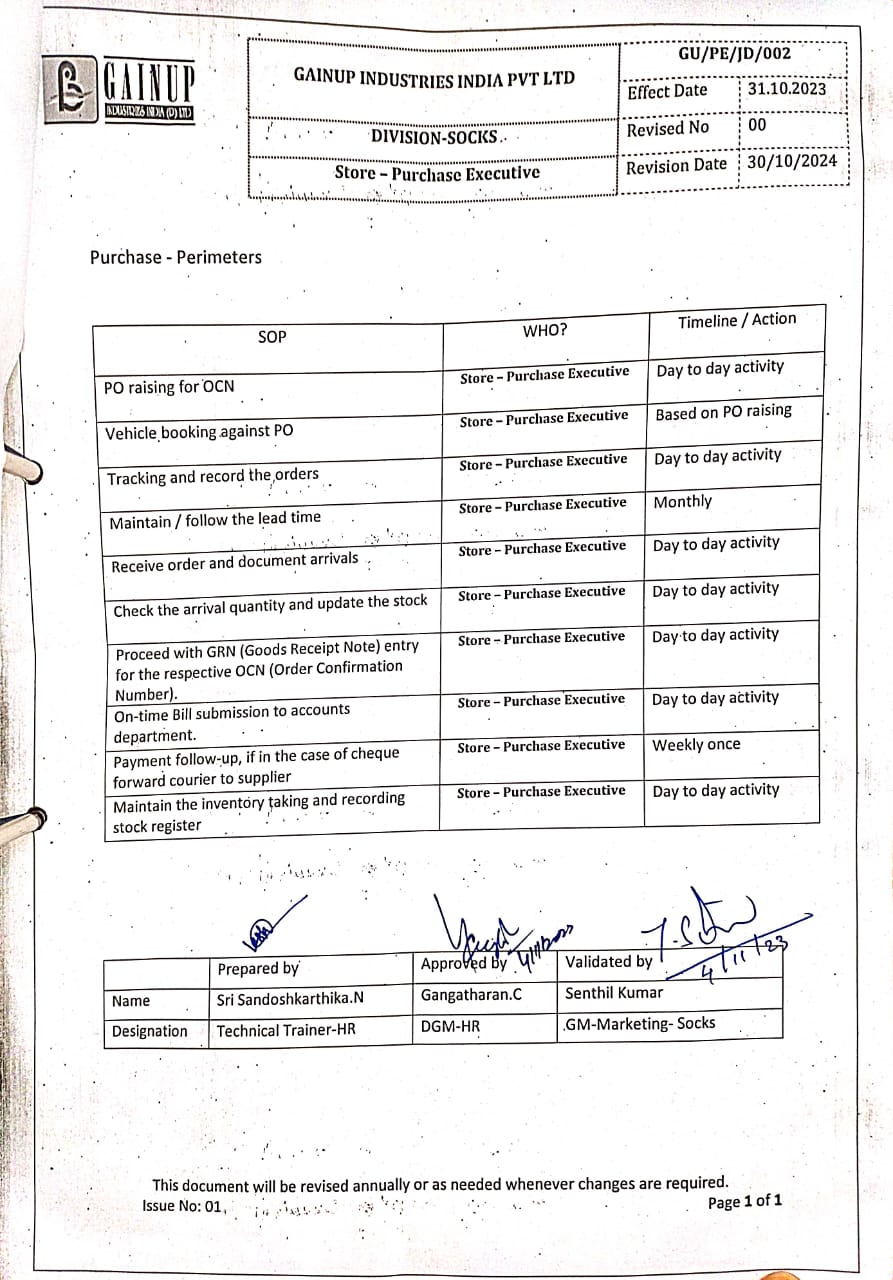 GAINUP
INDUSTRIES INDIA (P) LTD
GAINUP INDUSTRIES INDIA PVT LTD
DIVISION-SOCKS
Store – Purchase Executive
GU/PE/JD/002
Effect Date 31.10.2023
Revised No 00
Revision Date 30/10/2024
Purchase - Perimeters
SOP WHO? Timeline / Action
PO raising for OCN Store – Purchase Executive Day to day activity
Vehicle booking against PO Store – Purchase Executive Based on PO raising
Tracking and record the orders Store – Purchase Executive Day to day activity
Maintain / follow the lead time Store – Purchase Executive Monthly
Receive order and document arrivals Store – Purchase Executive Day to day activity
Check the arrival quantity and update the stock Store – Purchase Executive Day to day activity
Proceed with GRN (Goods Receipt Note) entry Store – Purchase Executive Day to day activity
for the respective OCN (Order Confirmation
Number).
On-time Bill submission to accounts Store – Purchase Executive Day to day activity
department.
Payment follow-up, if in the case of cheque Store – Purchase Executive Weekly once
forward courier to supplier
Maintain the inventory taking and recording Store – Purchase Executive Day to day activity
stock register
4/11/23
Prepared by Approved by Validated by
Name Sri Sandoshkarthika.N Gangatharan.C Senthil Kumar
Designation Technical Trainer-HR DGM-HR GM-Marketing- Socks
This document will be revised annually or as needed whenever changes are required.
Issue No: 01 Page 1 of 1